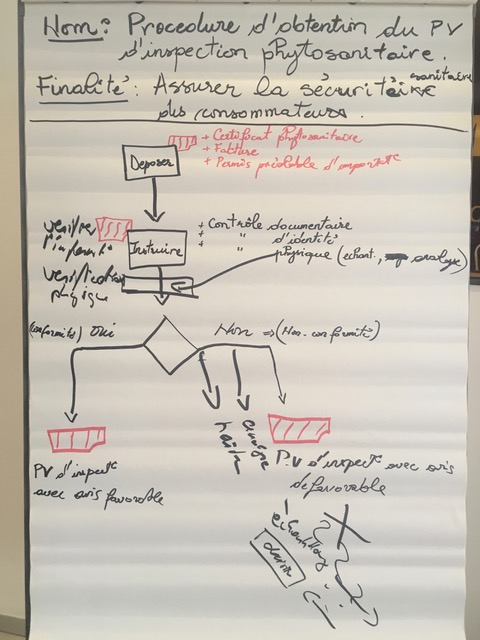 Nom: Procedure d'obtention du PV
d'inspection phytosanitaire.
Finalité: Assurer la sécurité sanitaire
des consommateurs.
+ Certificat phytosanitaire
+ Facture
+ Permis préalable d'import
Deposer
vérifier
Instruire
+ Contrôle documentaire
+ " d'identité
+ " physique (echant., analyse)
verification
physique
(conformité) Oui
Non => (Non-conformité)
PV d'inspect
avec avis favorable
P.V d'inspect avec avis
defavorable